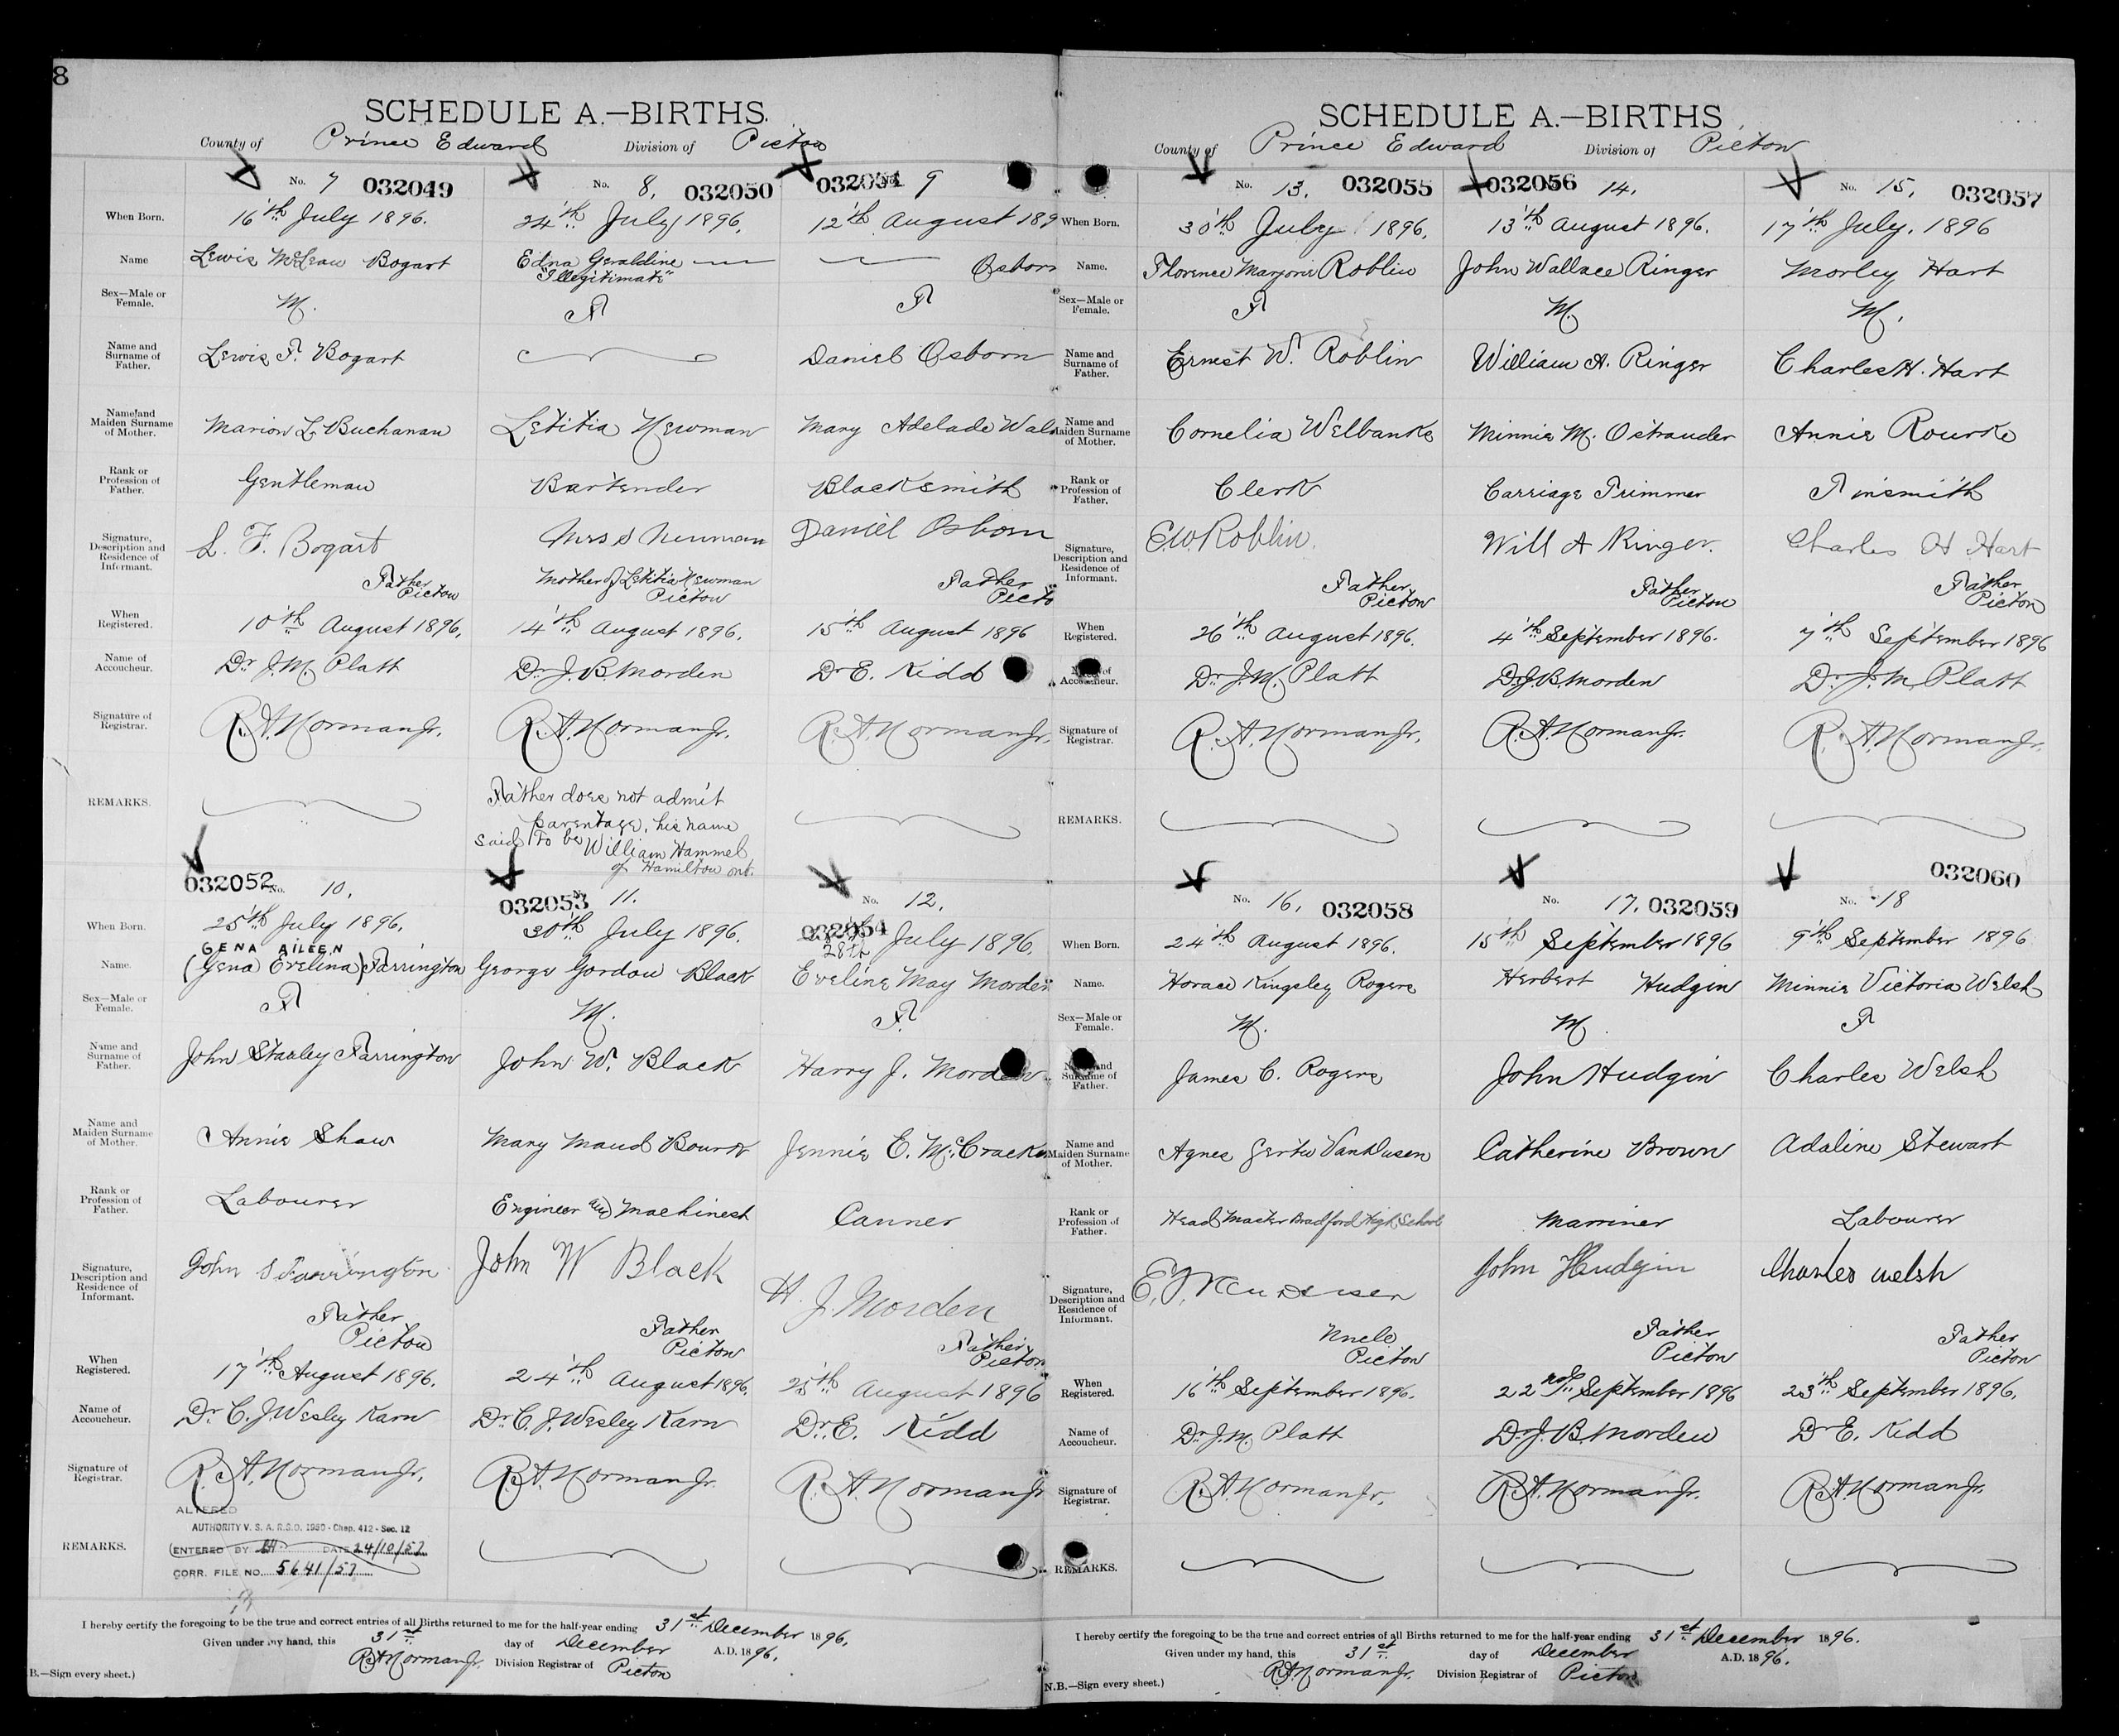 8
SCHEDULE A.—BIRTHS.
County of Prince Edward Division of Picton
No. 7 032049
When Born. 16th July 1896.
Name Lewis McLean Bogart
Sex—Male or Female. M.
Name and Surname of Father. Lewis F. Bogart
Name and Maiden Surname of Mother. Marion L. Buchanan
Rank or Profession of Father. Gentleman
Signature, Description and Residence of Informant. L. F. Bogart
Father
Picton
When Registered. 10th August 1896.
Name of Accoucheur. Dr J. M. Platt
Signature of Registrar. R. A. Norman Jr.
REMARKS.
No. 8. 032050
24th July 1896.
Edna Geraldine
"Illegitimate"
F
Letitia Newman
Bartender
Mrs S Neuman
Mother of Letitia Newman
Picton
14th August 1896.
Dr. J. B. Morden
R. A. Norman Jr.
Father does not admit
parentage, his name
said to be William Hammel
of Hamilton ont.
032051 No. 9
12th August 189
Osborn
F
Daniel Osborn
Mary Adelade Wal
Blacksmith
Daniel Osborn
Father
Picto
15th August 1896
Dr E. Kidd
R. A. Norman Jr.
032052 No. 10.
When Born. 25th July 1896.
GENA AILEEN
Name. (Gena Evelina) Farrington
Sex—Male or Female. F
Name and Surname of Father. John Stanley Farrington
Name and Maiden Surname of Mother. Annie Shaw
Rank or Profession of Father. Labourer
Signature, Description and Residence of Informant. John S Farrington
Father
Picton
When Registered. 17th August 1896.
Name of Accoucheur. Dr. C. J. Wesley Karn
Signature of Registrar. R. A. Norman Jr.
REMARKS.
ALTERED
AUTHORITY V. S. A. R.S.O. 1950 - Chap. 412 - Sec. 12
ENTERED BY DATE 24/10/57
CORR. FILE NO. 5641/57
032053 No. 11.
30th July 1896.
George Gordon Black
M.
John W. Black
Mary Maud
Engineer and Machinest
John W Black
Father
Picton
24th August 1896.
Dr C. J. Wesley Karn
R. A. Norman Jr.
No. 12.
032054
28th July 1896.
Eveline May Morden
F.
Harry J. Morden
Jennie E. McCracke
Canner
H. J. Morden
Father
Picton
25th August 1896
Dr. E. Kidd
R. A. Norman Jr
I hereby certify the foregoing to be the true and correct entries of all Births returned to me for the half-year ending 31st December 1896.
Given under my hand, this 31st day of December A.D. 1896.
R. A. Norman Jr. Division Registrar of Picton
B.—Sign every sheet.)
SCHEDULE A.—BIRTHS
County of Prince Edward Division of Picton
No. 13. 032055
When Born. 30th July 1896.
Name. Florence Marjorie Roblin
Sex—Male or Female. F
Name and Surname of Father. Ernest W. Roblin
Name and Maiden Surname of Mother. Cornelia Welbanks
Rank or Profession of Father. Clerk
Signature, Description and Residence of Informant. E W Roblin.
Father
Picton
When Registered. 26th August 1896.
Name of Accoucheur. Dr. J. M. Platt
Signature of Registrar. R. A. Norman Jr.
REMARKS.
032056 14.
13th August 1896.
John Wallace Ringer
M.
William A. Ringer
Minnie M. Ostrander
Carriage Trimmer
Will A Ringer.
Father
Picton
4th September 1896.
Dr. J. B. Morden
R. A. Norman Jr.
No. 15. 032057
17th July. 1896
Morley Hart
M.
Charles H. Hart
Annie Rourke
Tinsmith
Charles H Hart
Father
Picton
7th September 1896
Dr. J. M. Platt
R. A. Norman Jr.
No. 16. 032058
When Born. 24th August 1896.
Name. Horace Kingsley Rogers
Sex—Male or Female. M.
Name and Surname of Father. James C. Rogers
Name and Maiden Surname of Mother. Agnes VanDusen
Rank or Profession of Father. Head Master Bradford High School
Signature, Description and Residence of Informant.
Uncle
Picton
When Registered. 16th September 1896.
Name of Accoucheur. Dr. J. M. Platt
Signature of Registrar. R. A. Norman Jr.
REMARKS.
No. 17. 032059
15th September 1896
Herbert Hudgin
M
John Hudgin
Catherine Brown
Marriner
John Hudgin
Father
Picton
22nd September 1896
Dr. J. B. Morden
R. A. Norman Jr.
032060
No. 18
9th September 1896
Minnie Victoria Welsh
F
Charles Welsh
Adaline Stewart
Labourer
Charles Welsh
Father
Picton
23rd September 1896.
Dr E. Kidd
R. A. Norman Jr.
I hereby certify the foregoing to be the true and correct entries of all Births returned to me for the half-year ending 31st December 1896.
Given under my hand, this 31st day of December A.D. 1896.
R. A. Norman Jr. Division Registrar of Picton
N.B.—Sign every sheet.)